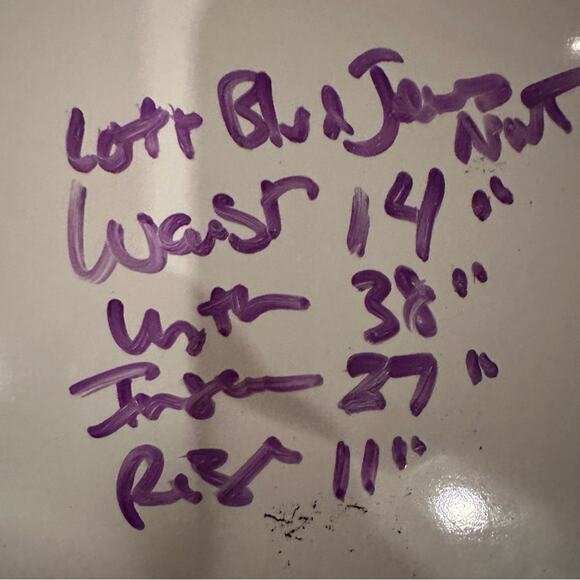 Loft Blue Jeans NWT
Waist 14"
Length 38"
Inseam 27"
Rise 11"